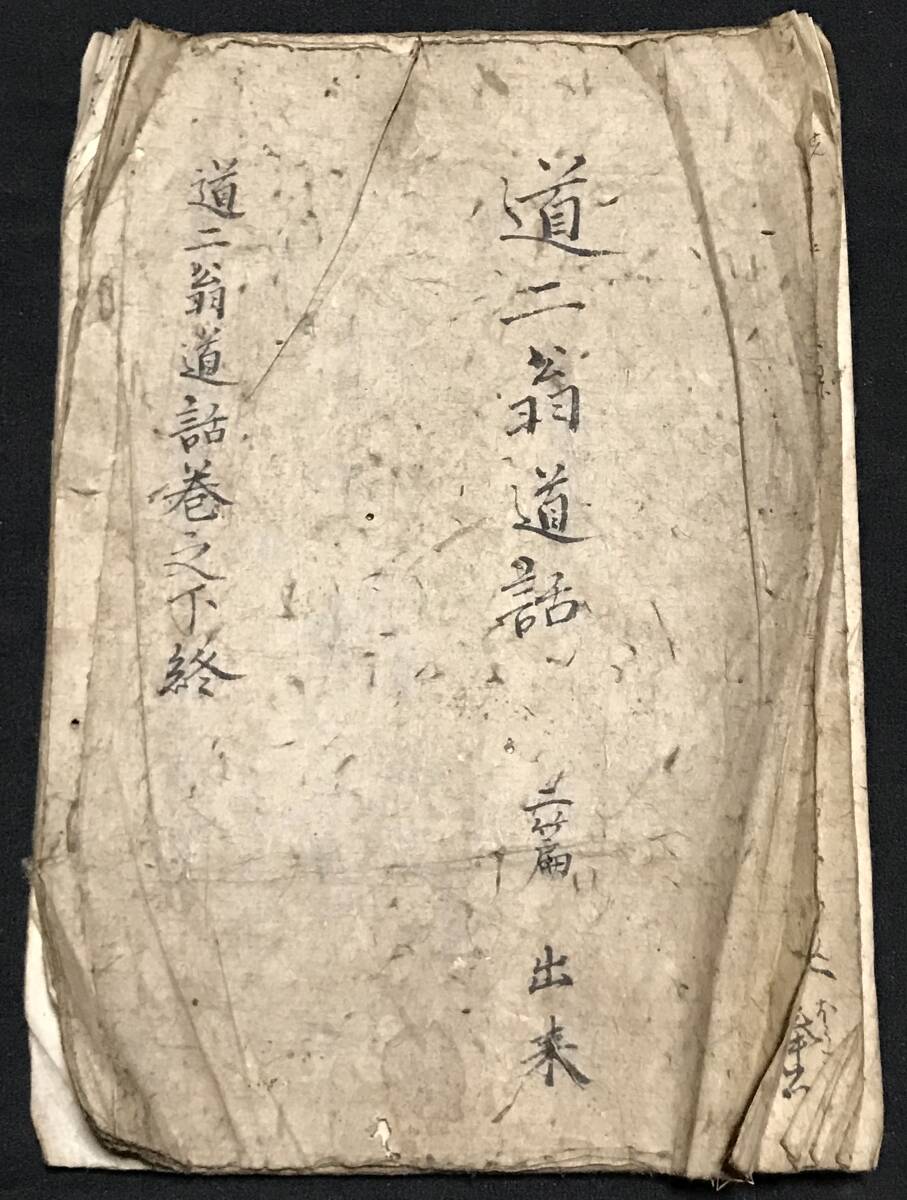 道二翁道話 二篇 出来
道二翁道話巻之下終